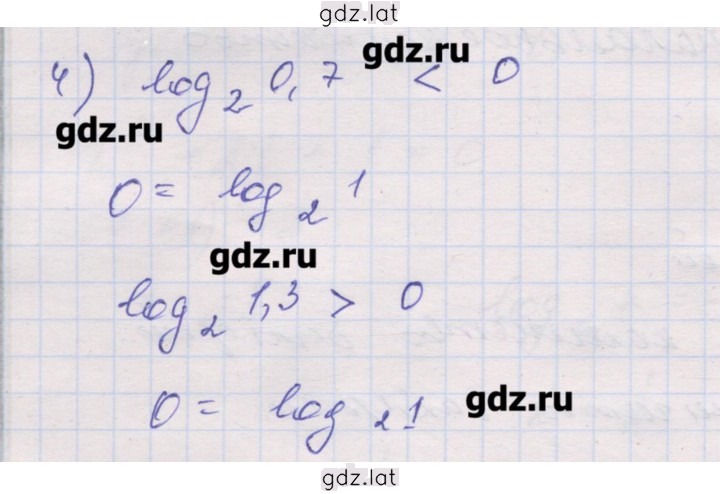 gdz.lat
gdz.ru
4) log₂ 0,7 < 0
gdz.ru
0 = log₂ 1
gdz.ru
log₂ 1,3 > 0
0 = log₂ 1
gdz.ru
gdz.lat